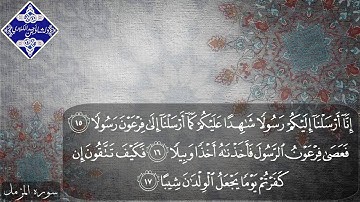 إِنَّآ أَرْسَلْنَآ إِلَيْكُمْ رَسُولًا شَٰهِدًا عَلَيْكُمْ كَمَآ أَرْسَلْنَآ إِلَىٰ فِرْعَوْنَ رَسُولًا ١٥
فَعَصَىٰ فِرْعَوْنُ ٱلرَّسُولَ فَأَخَذْنَٰهُ أَخْذًا وَبِيلًا ١٦ فَكَيْفَ تَتَّقُونَ إِن
كَفَرْتُمْ يَوْمًا يَجْعَلُ ٱلْوِلْدَٰنَ شِيبًا ١٧
سورة المزمل